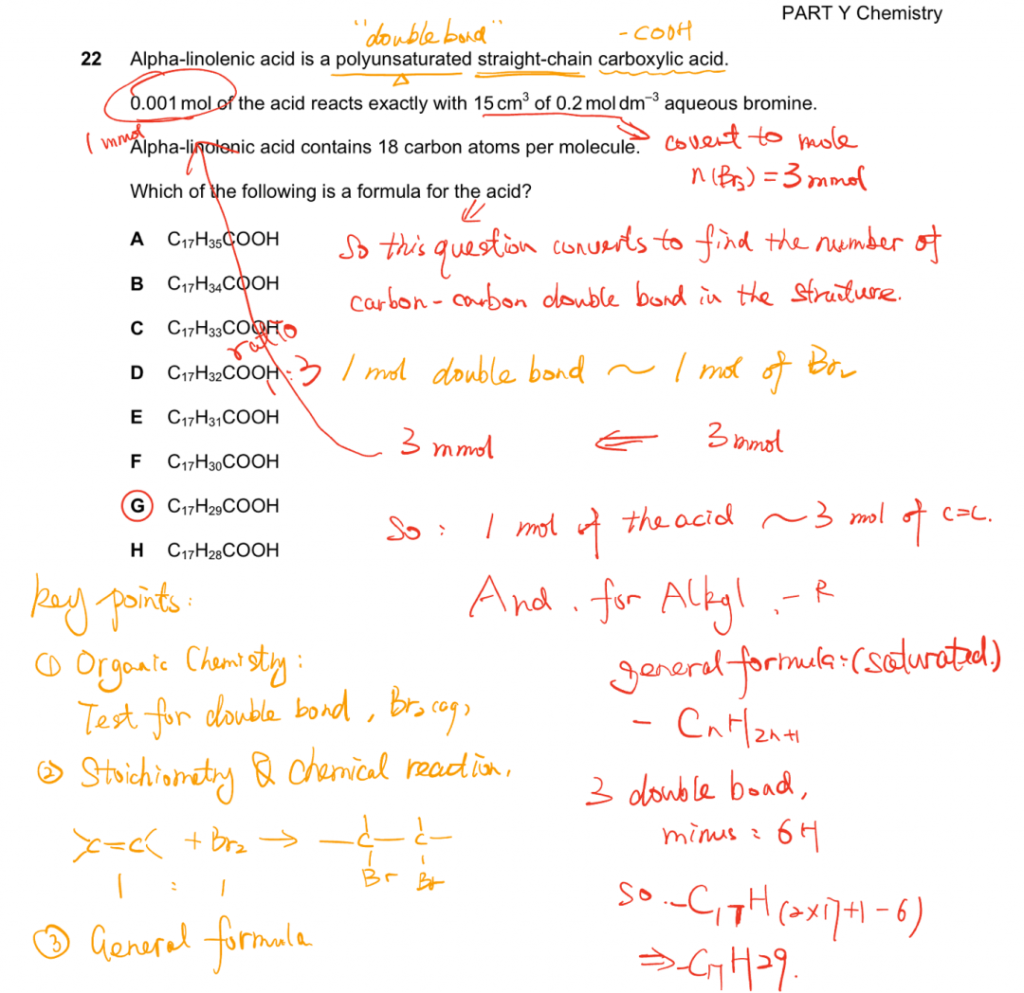 PART Y Chemistry
"double bond"
-COOH
22 Alpha-linolenic acid is a polyunsaturated straight-chain carboxylic acid.
0.001 mol of the acid reacts exactly with 15 cm³ of 0.2 mol dm⁻³ aqueous bromine.
1 mmol
Alpha-linolenic acid contains 18 carbon atoms per molecule.
covert to mole
n(Br₂) = 3 mmol
Which of the following is a formula for the acid?
A C₁₇H₃₅COOH
B C₁₇H₃₄COOH
C C₁₇H₃₃COOH
D C₁₇H₃₂COOH
E C₁₇H₃₁COOH
F C₁₇H₃₀COOH
G C₁₇H₂₉COOH
H C₁₇H₂₈COOH
So this question converts to find the number of
carbon-carbon double bond in the structure.
ratio
1:3
1 mol double bond ~ 1 mol of Br₂
3 mmol ⇐ 3 mmol
So: 1 mol of the acid ~3 mol of C=C.
And, for Alkyl, -R
general formula: (saturated.)
- CnH2n+1
3 double boad,
minus: 6H
so -C₁₇H(2×17+1-6)
⇒ -C₁₇H29.
key points:
① Organic Chemistry:
Test for double bond, Br₂(aq),
② Stoichiometry & Chemical reaction.
C=C + Br₂ → -C-C-
Br Br
1 : 1
③ General formula